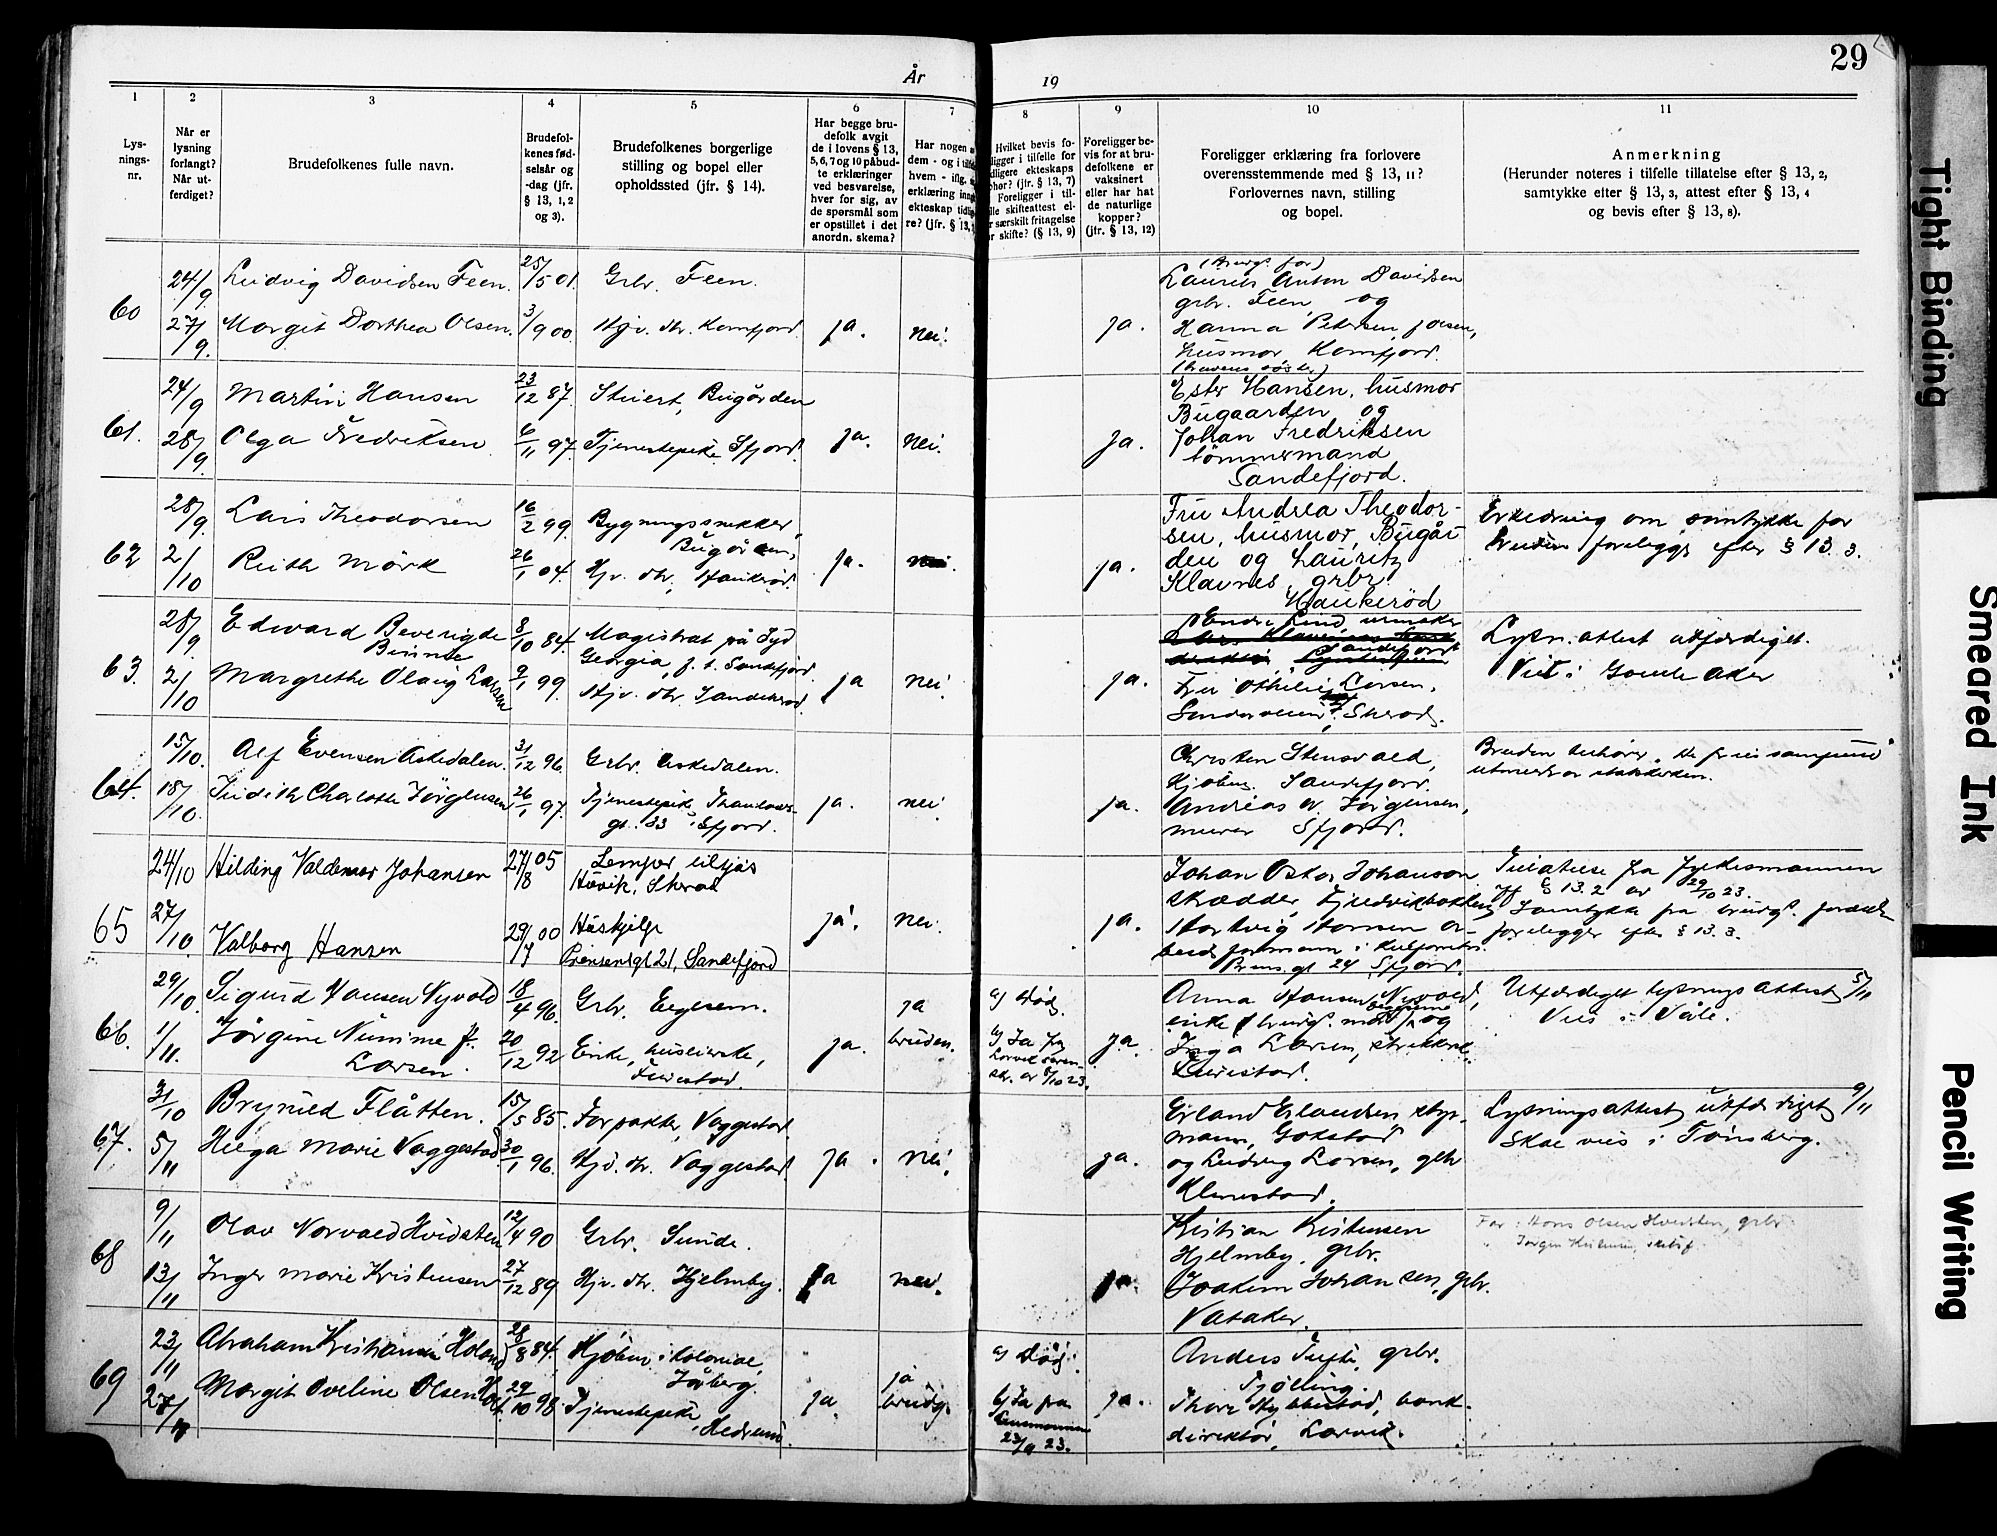 29
År
19
1
2
3
4
5
6
7
8
9
10
11
Lys-
nings-
nr.
Når er
lysning
forlangt?
Når ut-
ferdiget?
Brudefolkenes fulle navn.
Brudefol-
kenes fød-
selsår og
-dag (jfr.
§ 13, 1, 2
og 3).
Brudefolkenes borgerlige
stilling og bopel eller
opholdssted (jfr. § 14).
Har begge bru-
defolk avgit
de i lovens § 13,
5, 6, 7 og 10 påbud-
te erklæringer
ved besvarelse,
hver for sig, av
de spørsmål som
er opstillet i det
anordn. skema?
Har nogen a
dem - og i tilfe
hvem - iflg.
erklæring inng
ekteskap tidlig
re? (jfr. § 13,
Hvilket bevis fo-
ligger i tilfelle for
dligere ekteskaps
phør? (jfr. § 13, 7)
Foreligger i til-
lle skifteattest el-
r særskilt fritagelse
or skifte? (§ 13, 9)
Foreligger be-
vis for at bru-
defolkene er
vaksinert
eller har hat
de naturlige
kopper?
(jfr. § 13, 12)
Foreligger erklæring fra forlovere
overensstemmende med § 13, 11?
Forlovernes navn, stilling
og bopel.
Anmerkning
(Herunder noteres i tilfelle tillatelse efter § 13, 2,
samtykke efter § 13, 3, attest efter § 13, 4
og bevis efter § 13, 8).
60
24/9
27/9
Ludvig Davidsen Feen.
Margit Dorthea Olsen.
25/5 01
3/9 00
Grbr. Feen.
Hjv. dtr. Kamfjord
ja.
nei.
ja.
(brudg. far)
Laurits Anton Davidsen
grbr. Feen, og
Hanna Petersen,
husmor Kamfjord.
61.
24/9
28/9
Martin Hansen
Olga Fredriksen
23/12 87.
6/11 97.
Stuert, Bugården
Tjenestepike Sfjord.
ja.
nei.
ja.
Ester Hansen, husmor
Bugaarden og
Johan Fredriksen
tømmermand
Sandefjord.
62
28/9
2/10
Lars Theodorsen
Ruth Mörk
16/2 99.
26/1 04.
Bygningssnekker,
Bugården,
Hjv. dtr. Haukerød.
ja.
nei.
ja.
Fru Andrea Theodor-
sen, husmor, Bugår
den og Lauritz
Klavnes, grbr.
Haukerød
Erklæring om samtykke for
bruden foreligger efter § 13. 3.
63.
28/9
2/10
Edward Beveridge
Binnie
Margrethe Olaug Larsen
8/10 84.
9/1 99.
Magistrat på Syd
Georgia, f. t. Sandefjord.
Hjv. dtr. Sandeherad.
ja
nei.
ja.
Lind urmaker
Sandefjord
Fru Othilie Larsen,
Lysn. attest utfærdiget.
Viet i
64.
15/10.
18/10.
Alf Evensen Askedalen.
Judith Charlotte Jörgensen
31/12 96.
26/1 97.
Grbr. Askedalen.
Tjenestepike,
gt. 33 Sfjord.
ja.
nei.
ja.
Christen Stensvold,
Kjøbm. Sandefjord.
Andreas W. Jörgensen,
murer Sfjord.
Bruden tilhører "de frie samfund"
utmeldt av statskirken.
65
24/10
27/10.
Hilding Valdemar Johansen
Valborg Hansen
27/8 05
29/7 00
Huvik, Sherad
Hushjelp
Prinsensgt 21, Sandefjord
ja.
nei.
ja.
Johan Oskar Johanson
skrædder,
Hartvig Hansen ar-
beidsformann i
Prins. gt 24 Sfjord.
Tillatelse fra fylkesmannen
§ 13. 2 av 29/10 23.
Samtykke fra brudg. forældre
foreligger efter § 13. 3.
66.
29/10.
1/11.
Sigurd Hansen Nyvold
Jörgine Numme f.
Larsen.
18/4 96.
20/12 92
Grbr.
Enke, husleierske,
Furustad.
ja.
ja
bruden.
a) død.
b) Ja fra
Larvik soren-
skr. av 8/10 23.
ja.
Anna Hansen Nyvold,
enke (brudg. mor) og
Inga Larsen,
Furustad.
Utfærdiget lysningsattest 5/11
Vies i Våle.
67.
31/10
5/11
Brynild Flåtten.
Helga Marie Vaggestad
15/5 85.
30/1 96.
Forpakter, Vaggestad.
Hjv. dtr. Vaggestad.
ja.
nei.
ja.
Erland Erlandsen, styr
mann, Gokstad
og Ludvig Larsen, grbr
Klinestad.
Lysningsattest utfærdiget 9/11
Skal vies i Tønsberg.
68
9/11
13/11
Olav Norvald Hvidsten
Inger Marie Kristensen
12/4 90
27/12 89
Grbr. Sunde.
Hjv. dtr. Hjelmby.
ja
nei.
ja.
Kristian Kristensen
Hjelmby, grbr.
Joakim Johansen, grbr.
Vataker.
Far: Hans Olsen Hvidsten, grbr.
69
23/11
27/11
Abraham Kristiansen
Margit Oveline Olsen
28/8 84.
29/10 98.
Kjøbm. i kolonial,
Tjenestepike,
Hedrum.
ja.
ja
brudg.
a) død.
b) Ja fra
23/11 23.
ja.
Anders Tufte, grbr.
Tjölling.
Thore Nykkestad, bank-
direktør, Larvik.
Tight Binding
Smeared Ink
Pencil Writing